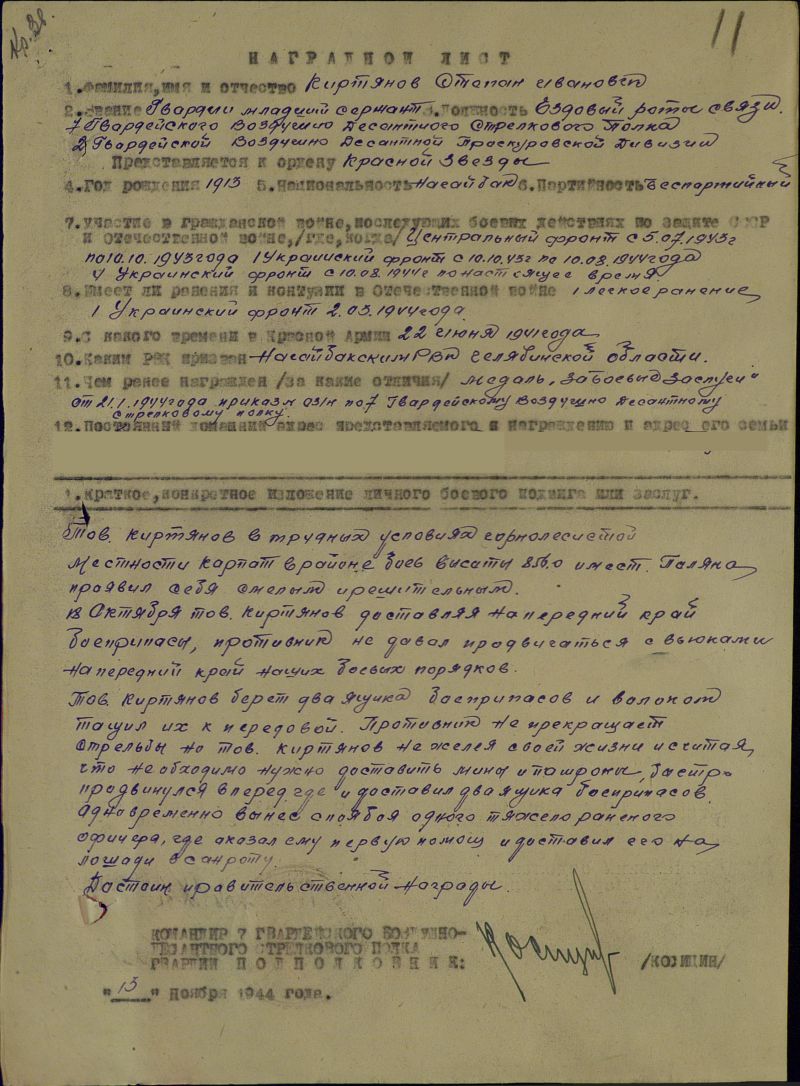 Кр. Зв.
11
НАГРАДНОЙ ЛИСТ
1.Фамилия,имя и отчество Киртянов Степан Иванович
2.Звание Гвардии младший сержант 3.Должность Ездовый роты связи.
7 Гвардейского Воздушно Десантного Стрелкового Полка
2 Гвардейской Воздушно Десантной Проскуровской Дивизии
Представляется к ордену Красной Звезды
4.Год рождения 1913 5.Национальность Нагайбак 6.Партийность Беспартийный
7.Участие в гражданской войне,последующих боевых действиях по защите СССР
и отечественной войне,/где,когда/ Центральный фронт с 5.07.1943г
по 10.10.1943 года 1 Украинский фронт с 10.10.43г по 10.08.1944 года
4 Украинский фронт с 10.08.1944г по настоящее время
8.Имеет ли ранения и контузии в Отечественной войне 1 легкое ранение,
1 Украинский фронт 2.03.1944 года.
9.С какого времени в Красной Армии 22 июня 1941 года
10.Каким РВК призван Нагайбакским РВК Челябинской области.
11.Чем ранее награжден /за какие отличия/ медаль „За боевые Заслуги"
от 21.1.1944 года приказ 03/н по 7 Гвардейскому Воздушно Десантному
Стрелковому полку.
12.Постоянный домашний адрес представляемого к награждению и адрес его семьи
1.Краткое,конкретное изложение личного боевого подвига или заслуг.
Тов. Киртянов в трудных условиях горнолесистой
местности Карпат в районе боев высоты 856,0 и мест. Паляна,
проявил себя смелым и решительным.
18 Октября тов. Киртянов доставляя на передний край
боеприпасы, противник не давал продвигаться с вьюками
на передний край наших боевых порядков.
Тов. Киртянов берет два ящика боеприпасов и волоком
тащил их к передовой. Противник не прекращает
стрельбы но тов. Киртянов не желея своей жизни и считая,
что необходимо нужно доставить мины и патроны, быстро
продвинулся вперед, где и доставил два ящика боеприпасов.
Одновременно вынес с поля боя одного тяжело раненого
офицера, где оказал ему первую помощ и доставил его на
лошади в санроту.
Достоин правительственной Награды.
КОМАНДИР 7 ГВАРДЕЙСКОГО ВОЗДУШНО-
ДЕСАНТНОГО СТРЕЛКОВОГО ПОЛКА
ГВАРДИИ ПОДПОЛКОВНИК: /КОЗИЦИН/
"13" Ноября 1944 года.